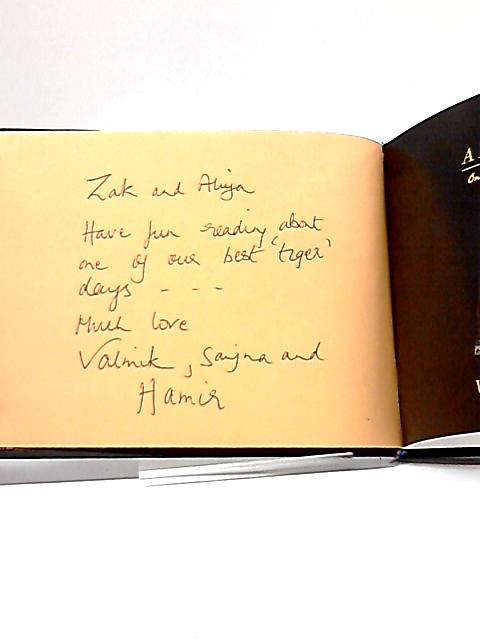 Zak and Aliya
Have fun reading about
one of our best 'tiger'
days - - -
Much love
Valmik, Sanjna and
Hamir
A
On